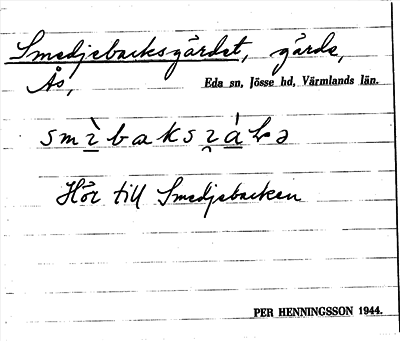 Smedjebacksgärdet, gärde,
Ås, Eda sn, Jösse hd, Värmlands län.
Hör till Smedjebacken
PER HENNINGSSON 1944.